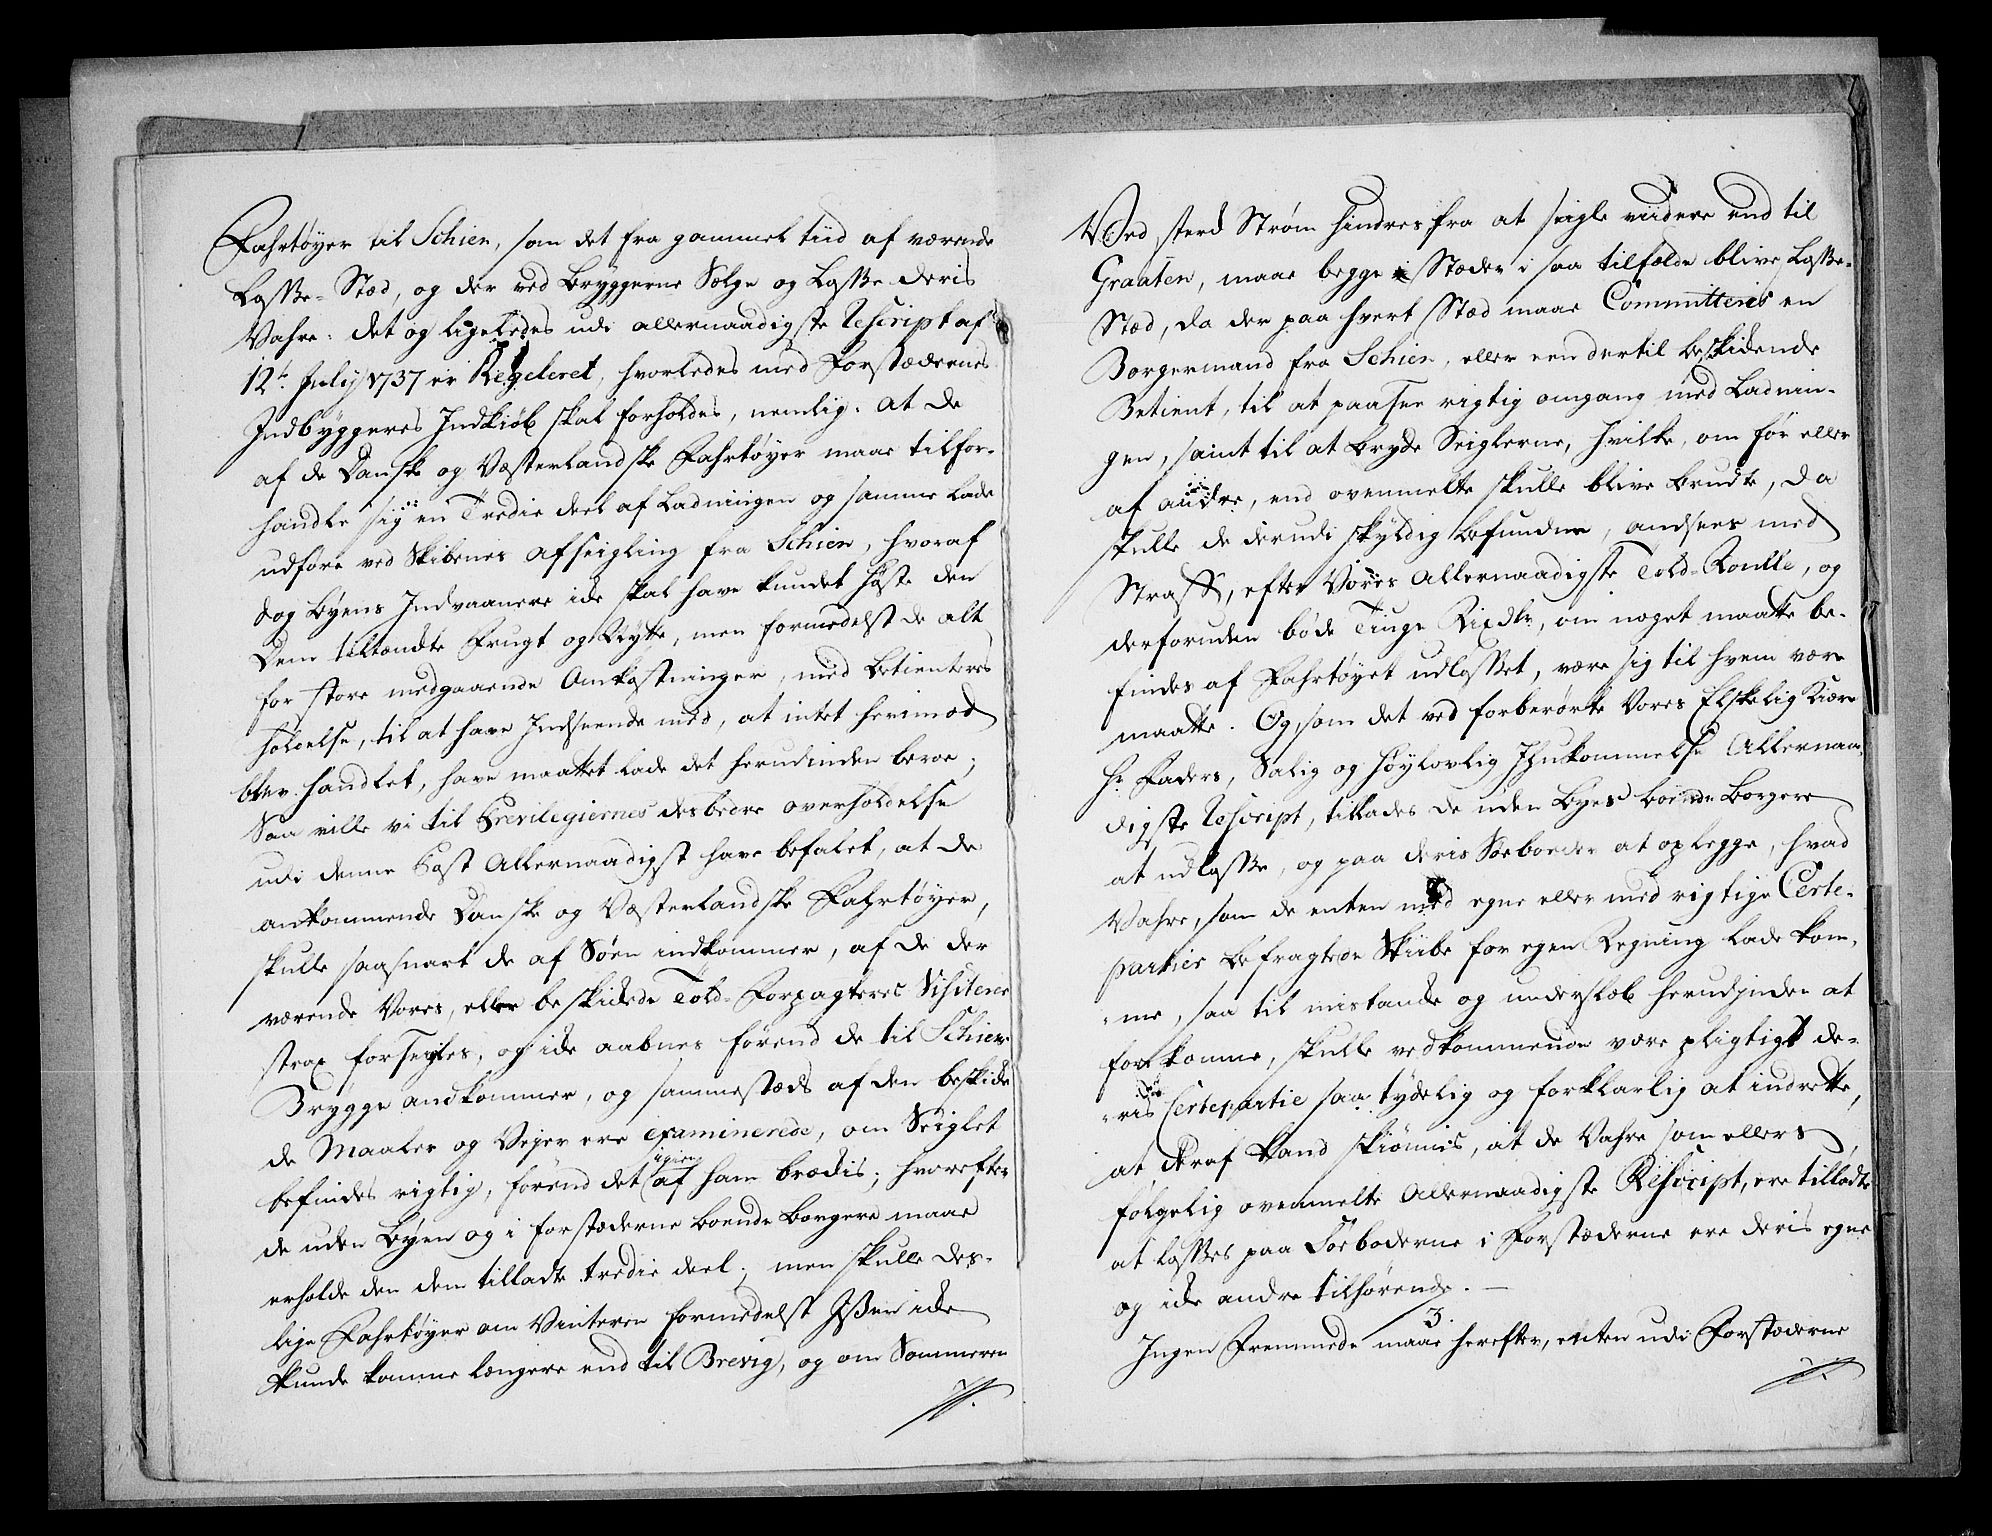 Fahrtøyer til Schien, som det fra gammel tiid af værende
Losse-Stæd, og der ved bryggerne Sælge og Losse deris
Vahre: det og ligeledes udi allernaadigste Rescript af
12te July 1737 er Reguleret, hvorledes med Forstædernes
Indbyggeres Indkiøb skal forholdes, nemlig: at de
af de Danske og Vesterlandske Fahrtøyer maae tilfor-
handle sig en Tredie deel af Ladningen og samme lade
udføre ved Skibenes afseigling fra Schien, hvoraf
dog byens Indvaanere icke skal have kundet høste den
Dem tiltænckte Frugt og Nytte, men formedelst de alt
for store medgaaende Omkostninger, med betienteres
holdelse, til at have Indseende med, at intet herimod
blev handlet, have maattet lade det herudinden beroe;
Saa ville vi til Previlegiernes desbedre overholdelse
udi denne Post Allernaadigst have befalet, at de
ankommende Danske og Vesterlandske Fahrtøyer,
skulle saasnart de af Søen indkommer, af de der
værende Vores, eller beskickede Told-Forpagteres Visiterer
strax forsegles, og icke aabnes førend de til Schiens
Brygge anckommer, og sammestæds af den beskicke
de Maaler og Vejer ere examinerede, om Seiglet
befindes rigtig, førend det igien af ham brædis; hvorefter
de uden byen og i forstæderne boende borgere maae
erholde den dem tilladte tredie deel; men skulle des-
lige Fahrtøyer om Vinteren formedelst Issen icke
kunde komme længere end til Brevig, og om Sommeren
Ved sterck Strøm hindres fra at seigle viidere end til
Graaten, maae begge Stæder i saa tilfælde blive Losse-
Stæd, da der paa hvert Stæd maae Committeris en
Borgermand fra Schien, eller een dertil beskickende
Betient, til at paasee rigtig omgang med Ladnin-
gen, samt til at bryde Seiglerne, hvilke, om før eller
af andre, end ovenmelte skulle blive brudte, da
skulle de derudi skyldig befunden, ansees med
Straff, efter Vores Allernaadigste Told-Roulle, og
derforuden bøde Tiuge Rixdlr, om noget maatte be-
findes af Fahrtøyet udlosset, være sig til hvem være
maatte. Og, som det ved forberørte Vores Elskelig Kiære
Hr. Faders, Salig og Høylovlig Ihukommelse Allernaa-
digste Rescript, tillades de uden byes boende borgere
at udlosse, og paa deris Søeboeder at oplegge, hvad
Vahre, som de enten med egne eller med rigtige Certe-
partier befragtede Skiibe for egen Regning lade kom-
me, saa til mistancke og underslæb herudjnden at
forekomme, skulle vedkommende være pligtige de-
ris Certepartie saa tydelig og forklarlig at indrette,
at deraf kand skiønnis, at de Vahre som ellers
følgelig ovenmelte Allernaadigste Rescript, ere tilladte
at losses paa Søeboderne i Forstæderne ere deris egne
og icke andre tilhørende.
3
Ingen Fremmede maae herefter, enten udi Forstæderne